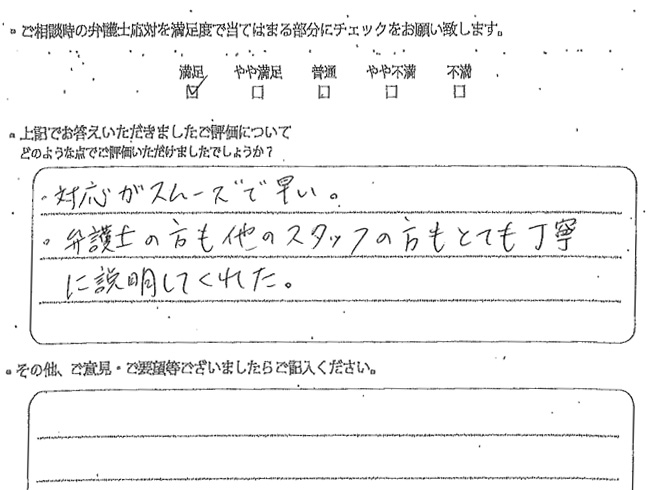 ・ご相談時の弁護士応対を満足度で当てはまる部分にチェックをお願い致します。
満足 やや満足 普通 やや不満 不満
☑ □ □ □ □
・上記でお答えいただきましたご評価について
どのような点でご評価いただけましたでしょうか？
・対応がスムーズで早い。
・弁護士の方も他のスタッフの方もとても丁寧
に説明してくれた。
・その他、ご意見・ご要望等ございましたらご記入ください。